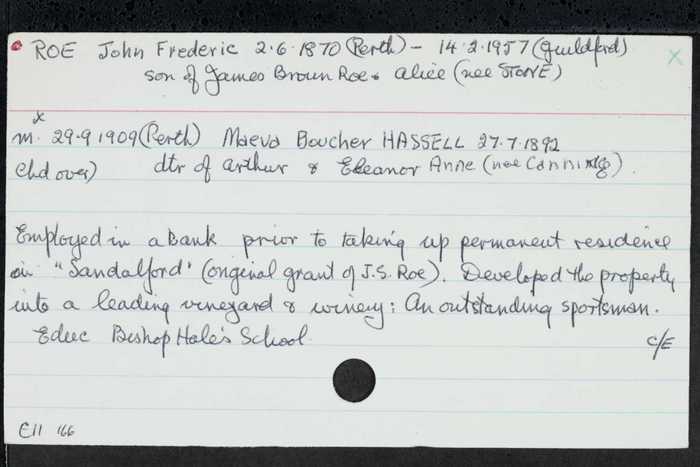 ROE John Frederic 2.6.1870 (Perth) - 14.2.1957 (Guildford) x
son of James Brown Roe & Alice (nee STONE)
x
m. 29.9 1909 (Perth) Maeva Boucher HASSELL 27.7.1892
Chd over) dtr of Arthur & Eleanor Anne (nee Canning).
Employed in a Bank prior to taking up permanent residence
in "Sandalford' (original grant of J.S. Roe). Developed the property
into a leading vineyard & winery: An outstanding sportsman.
Educ Bishop Hale's School.
C/E
E11 166